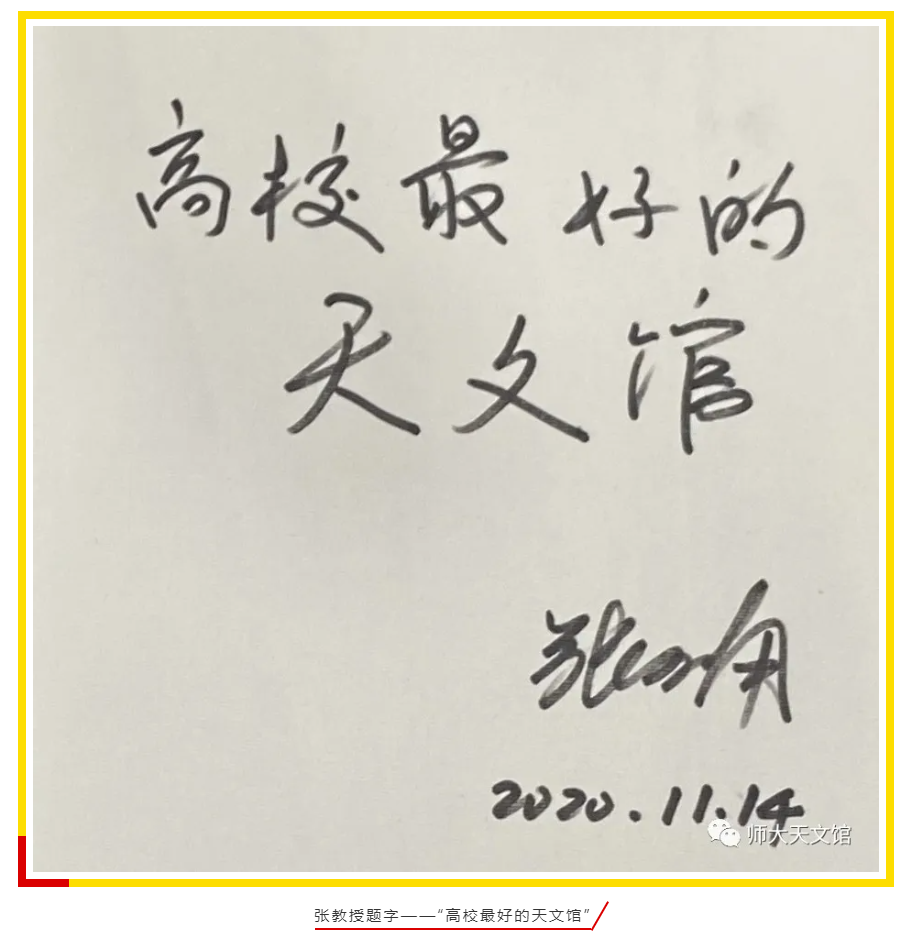 高校最好的
天文馆
2020.11.14
师大天文馆
张教授题字——“高校最好的天文馆”